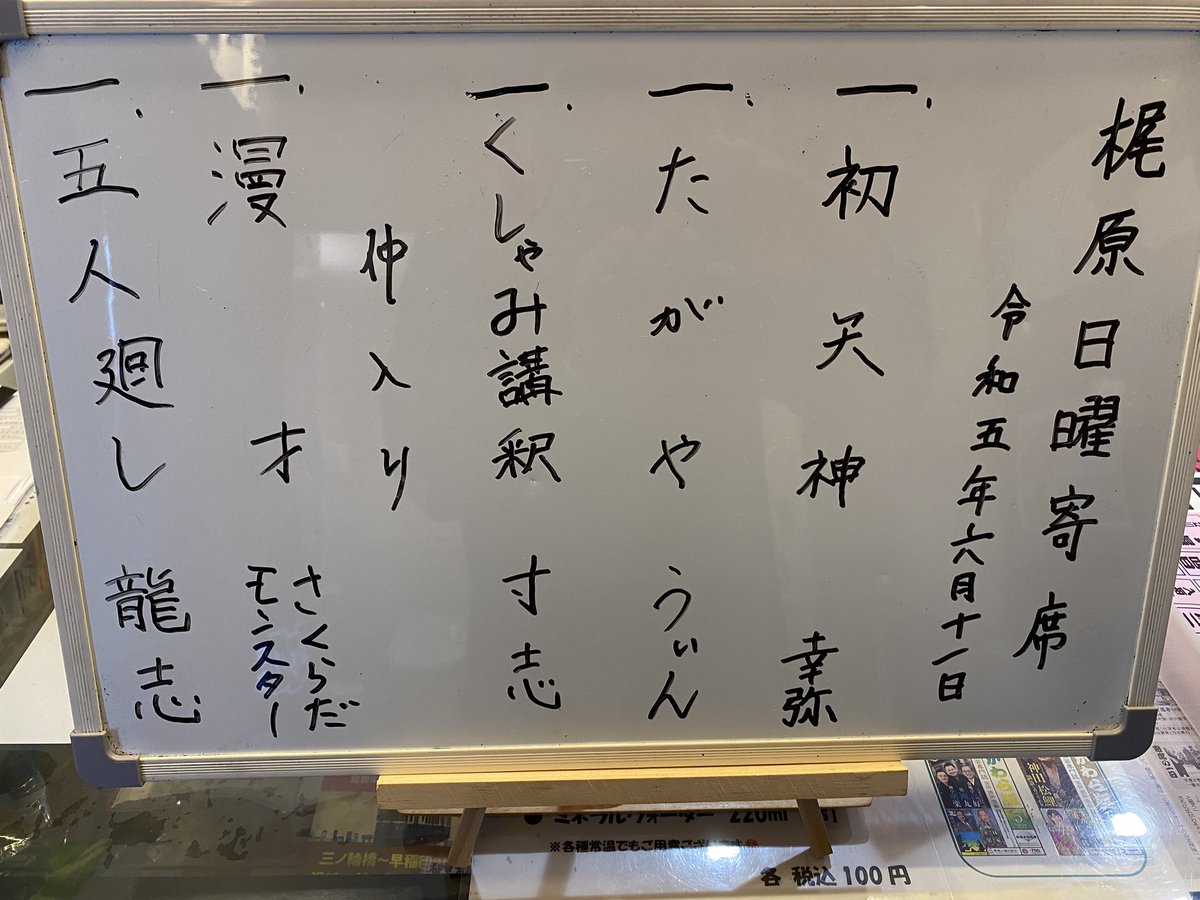 梶原日曜寄席
令和五年六月十一日
一、初天神 幸弥
一、たがや うぃん
一、くしゃみ講釈 寸志
仲入り
一、漫才 さくらだ
モンスター
一、五人廻し 龍志
三ノ輪橋～早稲田
● ミネラルウォーター 220ml
※各種常温でもご用意ございます
各 税込100円